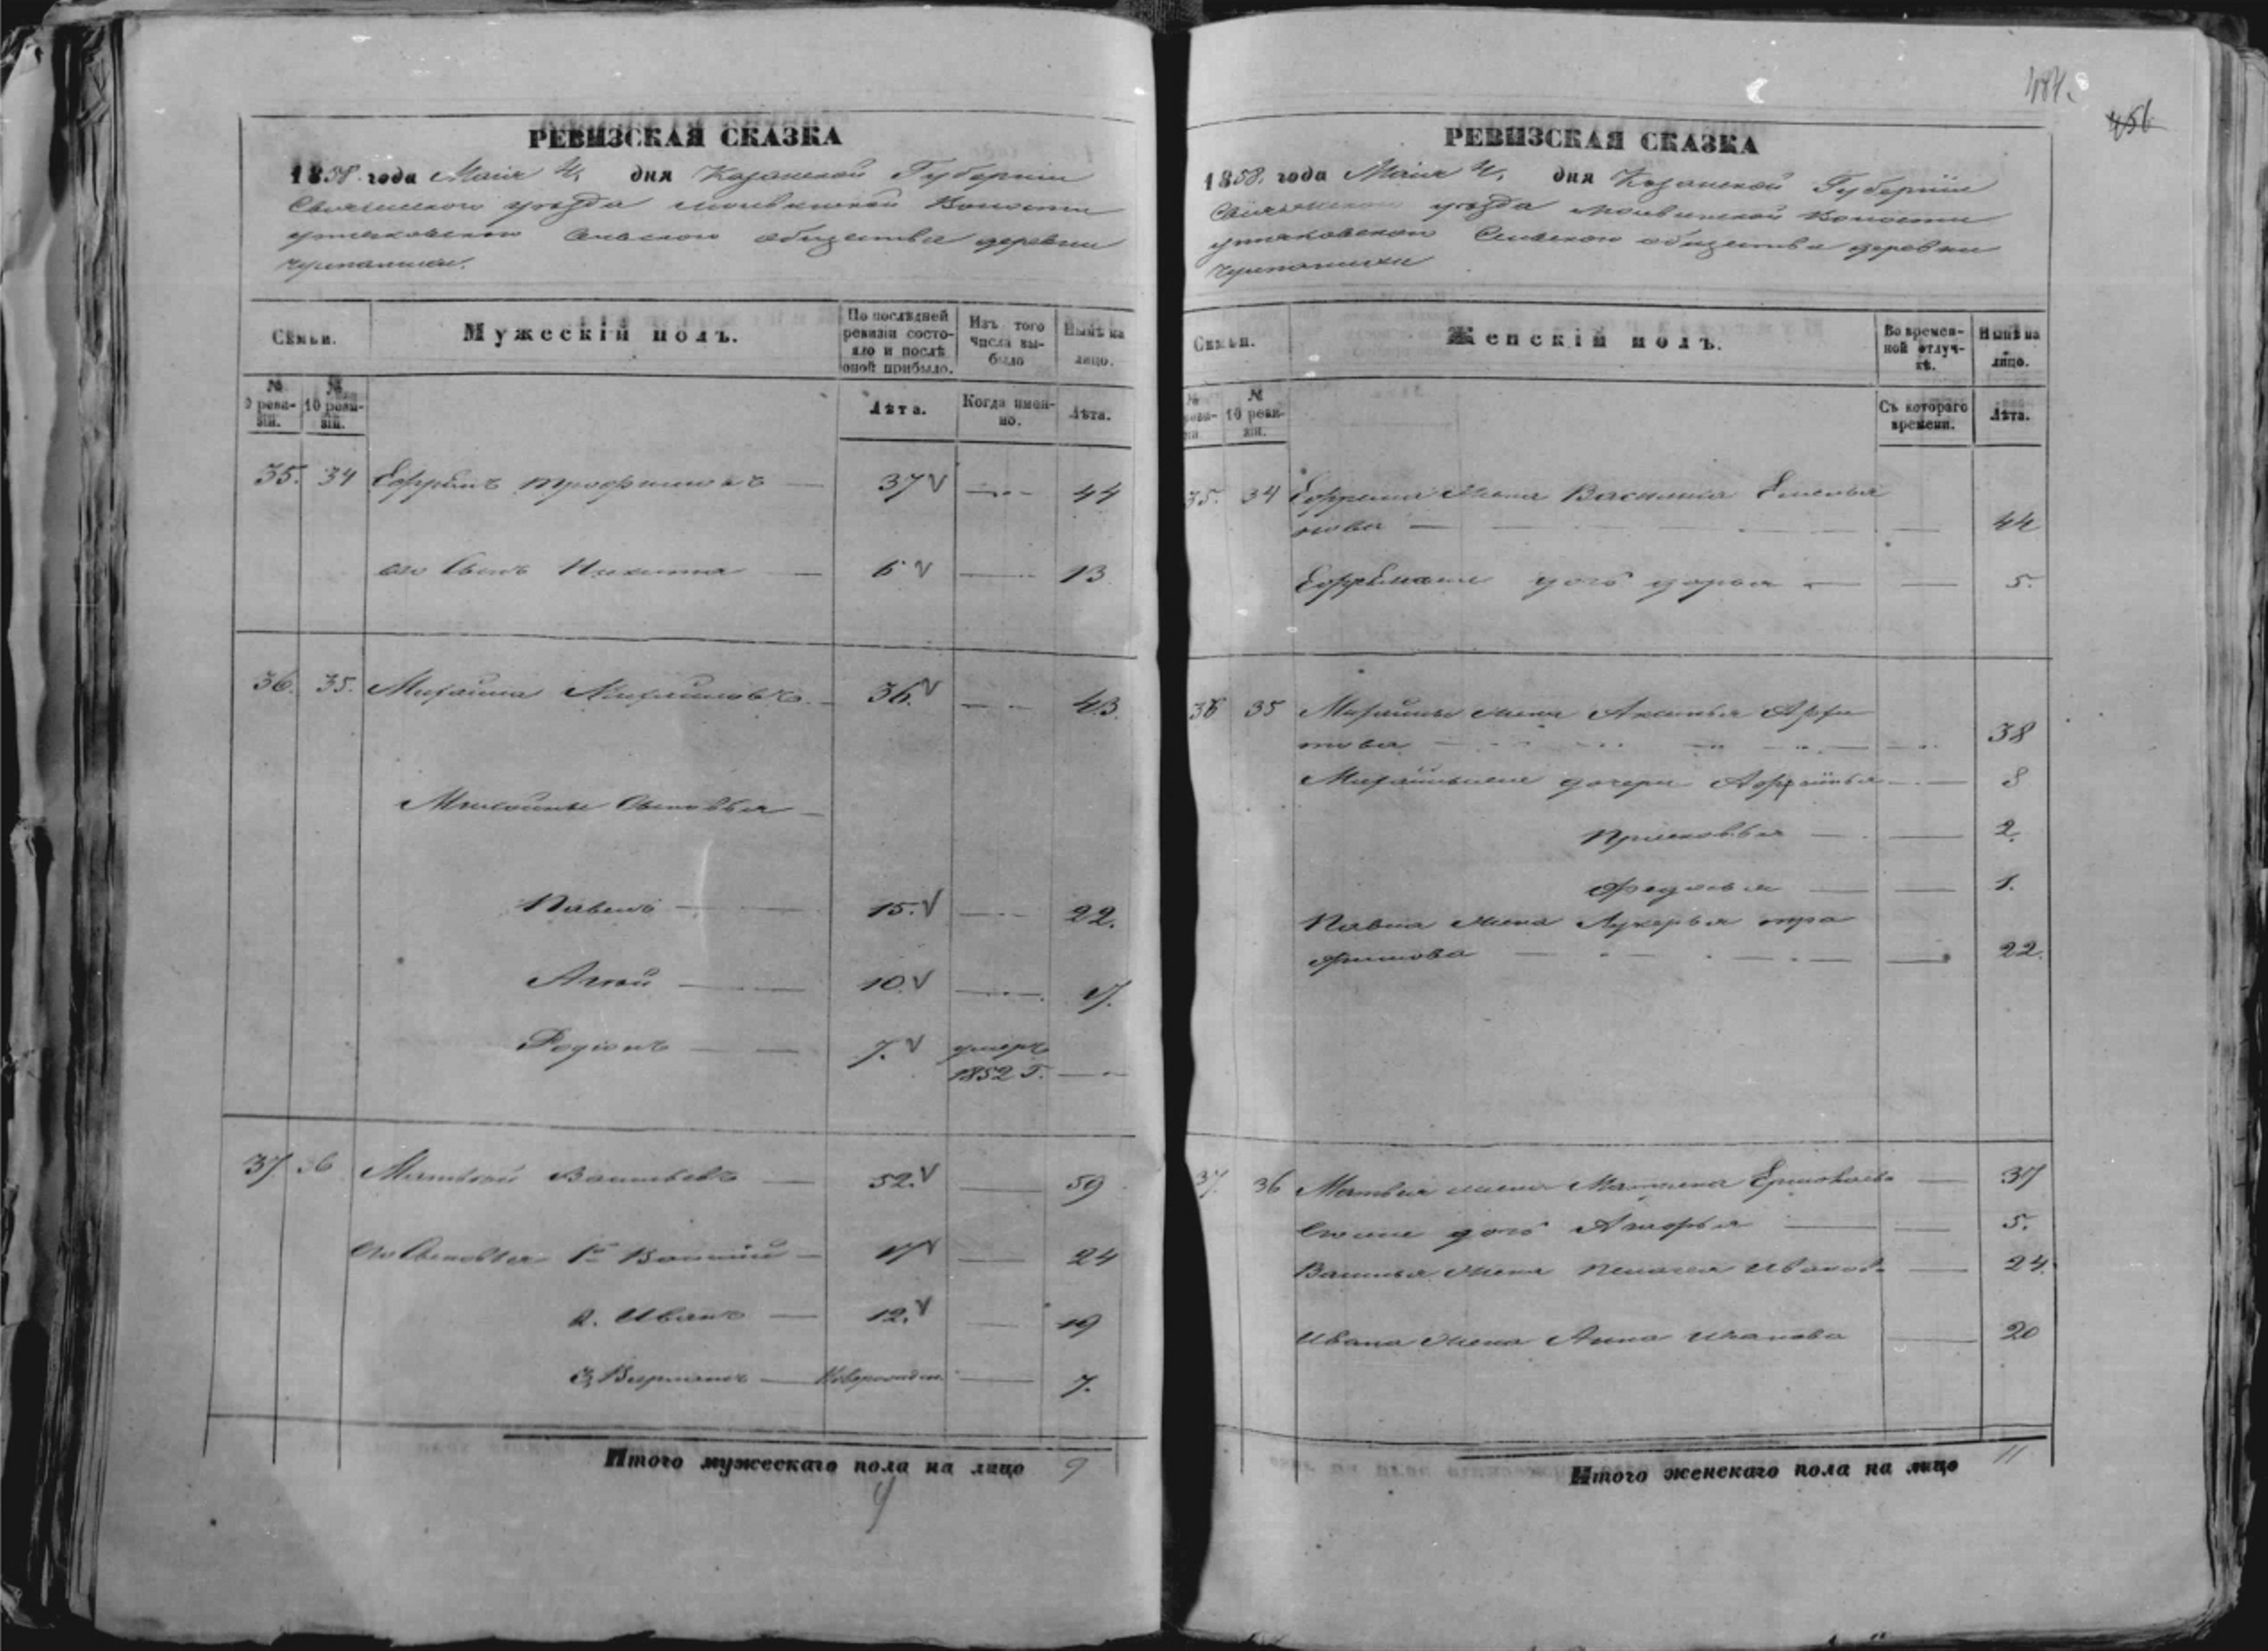 РЕВИЗСКАЯ СКАЗКА
1858 года Маія 4, дня Казанской Губерніи
Свіяжскаго уѣзда Волости
Сельскаго общества деревни
Семьи.
Мужескій полъ.
По послѣдней ревизіи состояло и послѣ оной прибыло.
Изъ того числа выбыло
Нынѣ на лицо.
№ 9 ревизіи.
№ 10 ревизіи.
Лѣта.
Когда именно.
Лѣта.
35. 34 Ефремъ Трофимовъ — 37 — 44
его Сынъ Никита — 6 — 13
36. 35. Михайла Михайловъ — 36. — 43.
Михайлы Сыновья —
Павелъ — 15. — 22.
— 10. — 17.
Родіонъ — 7. умеръ
1852 г. —
37. 36 Матвей Васильевъ — 52. — 59
Его Сыновья 1й Василій — 17 — 24
2. Иванъ — 12. — 19
3, — Новорожден. — 7.
Итого мужескаго пола на лицо 9
484
456
РЕВИЗСКАЯ СКАЗКА
1858. года Маія 4, дня Казанской Губерніи
Свіяжскаго уѣзда Волости
Сельскаго общества деревни
Семьи.
Женскій полъ.
Во временной отлучкѣ.
Нынѣ на лицо.
№ ревизіи.
№ 10 ревизіи.
Съ котораго времени.
Лѣта.
35. 34 Ефрема жена Василиса Емелья
нова — 44
дочь Дарья — 5.
36 35 Михайлы жена Аксинья
— 38
дочери — 8
Прасковья — 2.
Федосья — 1.
Павла жена Лукерья Тро
фимова — 22.
37. 36 Матвея жена Матрена — 37
дочь — 5.
Василья жена Пелагея Иванов. — 24.
Ивана жена Анна — 20
Итого женскаго пола на лицо 11